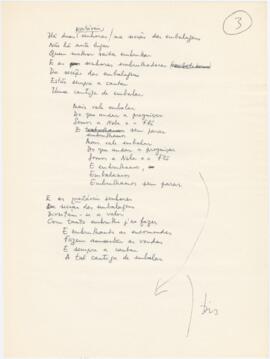 3
notáveis
Há duas senhoras na secção das embalagens
Não há ante
Quem melhor saiba embrulhar
E as senhoras embrulhadoras
Da secção das embalagens
Estão sempre a cantar
Uma cantiga de embalar
Mais vale embalar
Do que andar a preguiçar
Somos a Nela e a Fló
E sem parar
embrulhamos
Mais vale embalar
Do que andar a preguiçar
Somos a Nela e a Fló
E embrulhamos,
Embalamos
Embrulhamos sem parar
E as notáveis senhoras
Da secção das embalagens
Divertem-se a valer
Com tanto embrulho p'ra fazer
E embrulhando as encomendas
Fazem aumentar as vendas
E sempre a cantar
A tal cantiga de embalar
bis